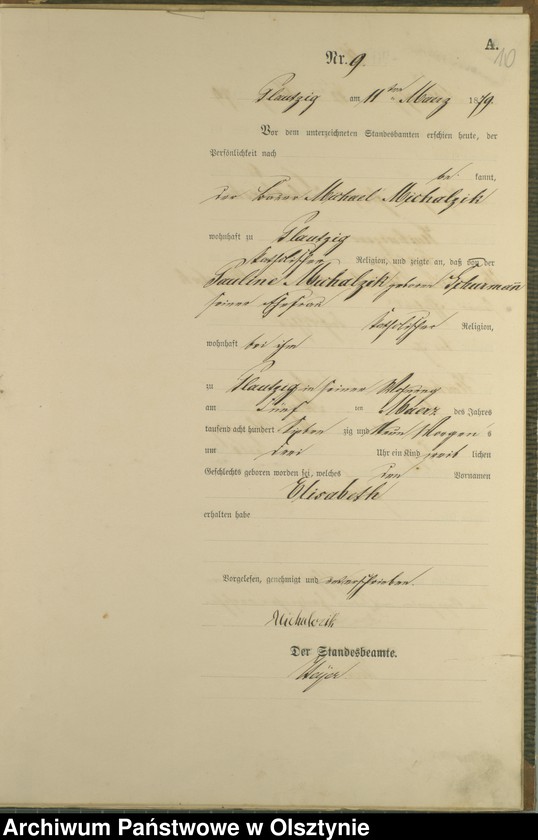 A.
10
Nr. 9
Plautzig am 11 ten Maerz 1879
Vor dem unterzeichneten Standesbamten erschien heute, der
Persönlichkeit nach
be kannt,
der Michael Michalzik
wohnhaft zu Plautzig
katholischer Religion, und zeigte an, daß von der
Pauline Michalzik geborene Schurmann
seiner Ehefrau
katholischer Religion,
wohnhaft bei ihm
zu Plautzig in seiner Wohnung
am fünf ten Maerz des Jahres
tausend acht hundert sieben zig und neun Morgen s
um drei Uhr ein Kind weib lichen
Geschlechts geboren worden sei, welches den Vornamen
Elisabeth
erhalten habe
Vorgelesen, genehmigt und unterschrieben.
Michalzik
Der Standesbeamte.
Archiwum Państwowe w Olsztynie